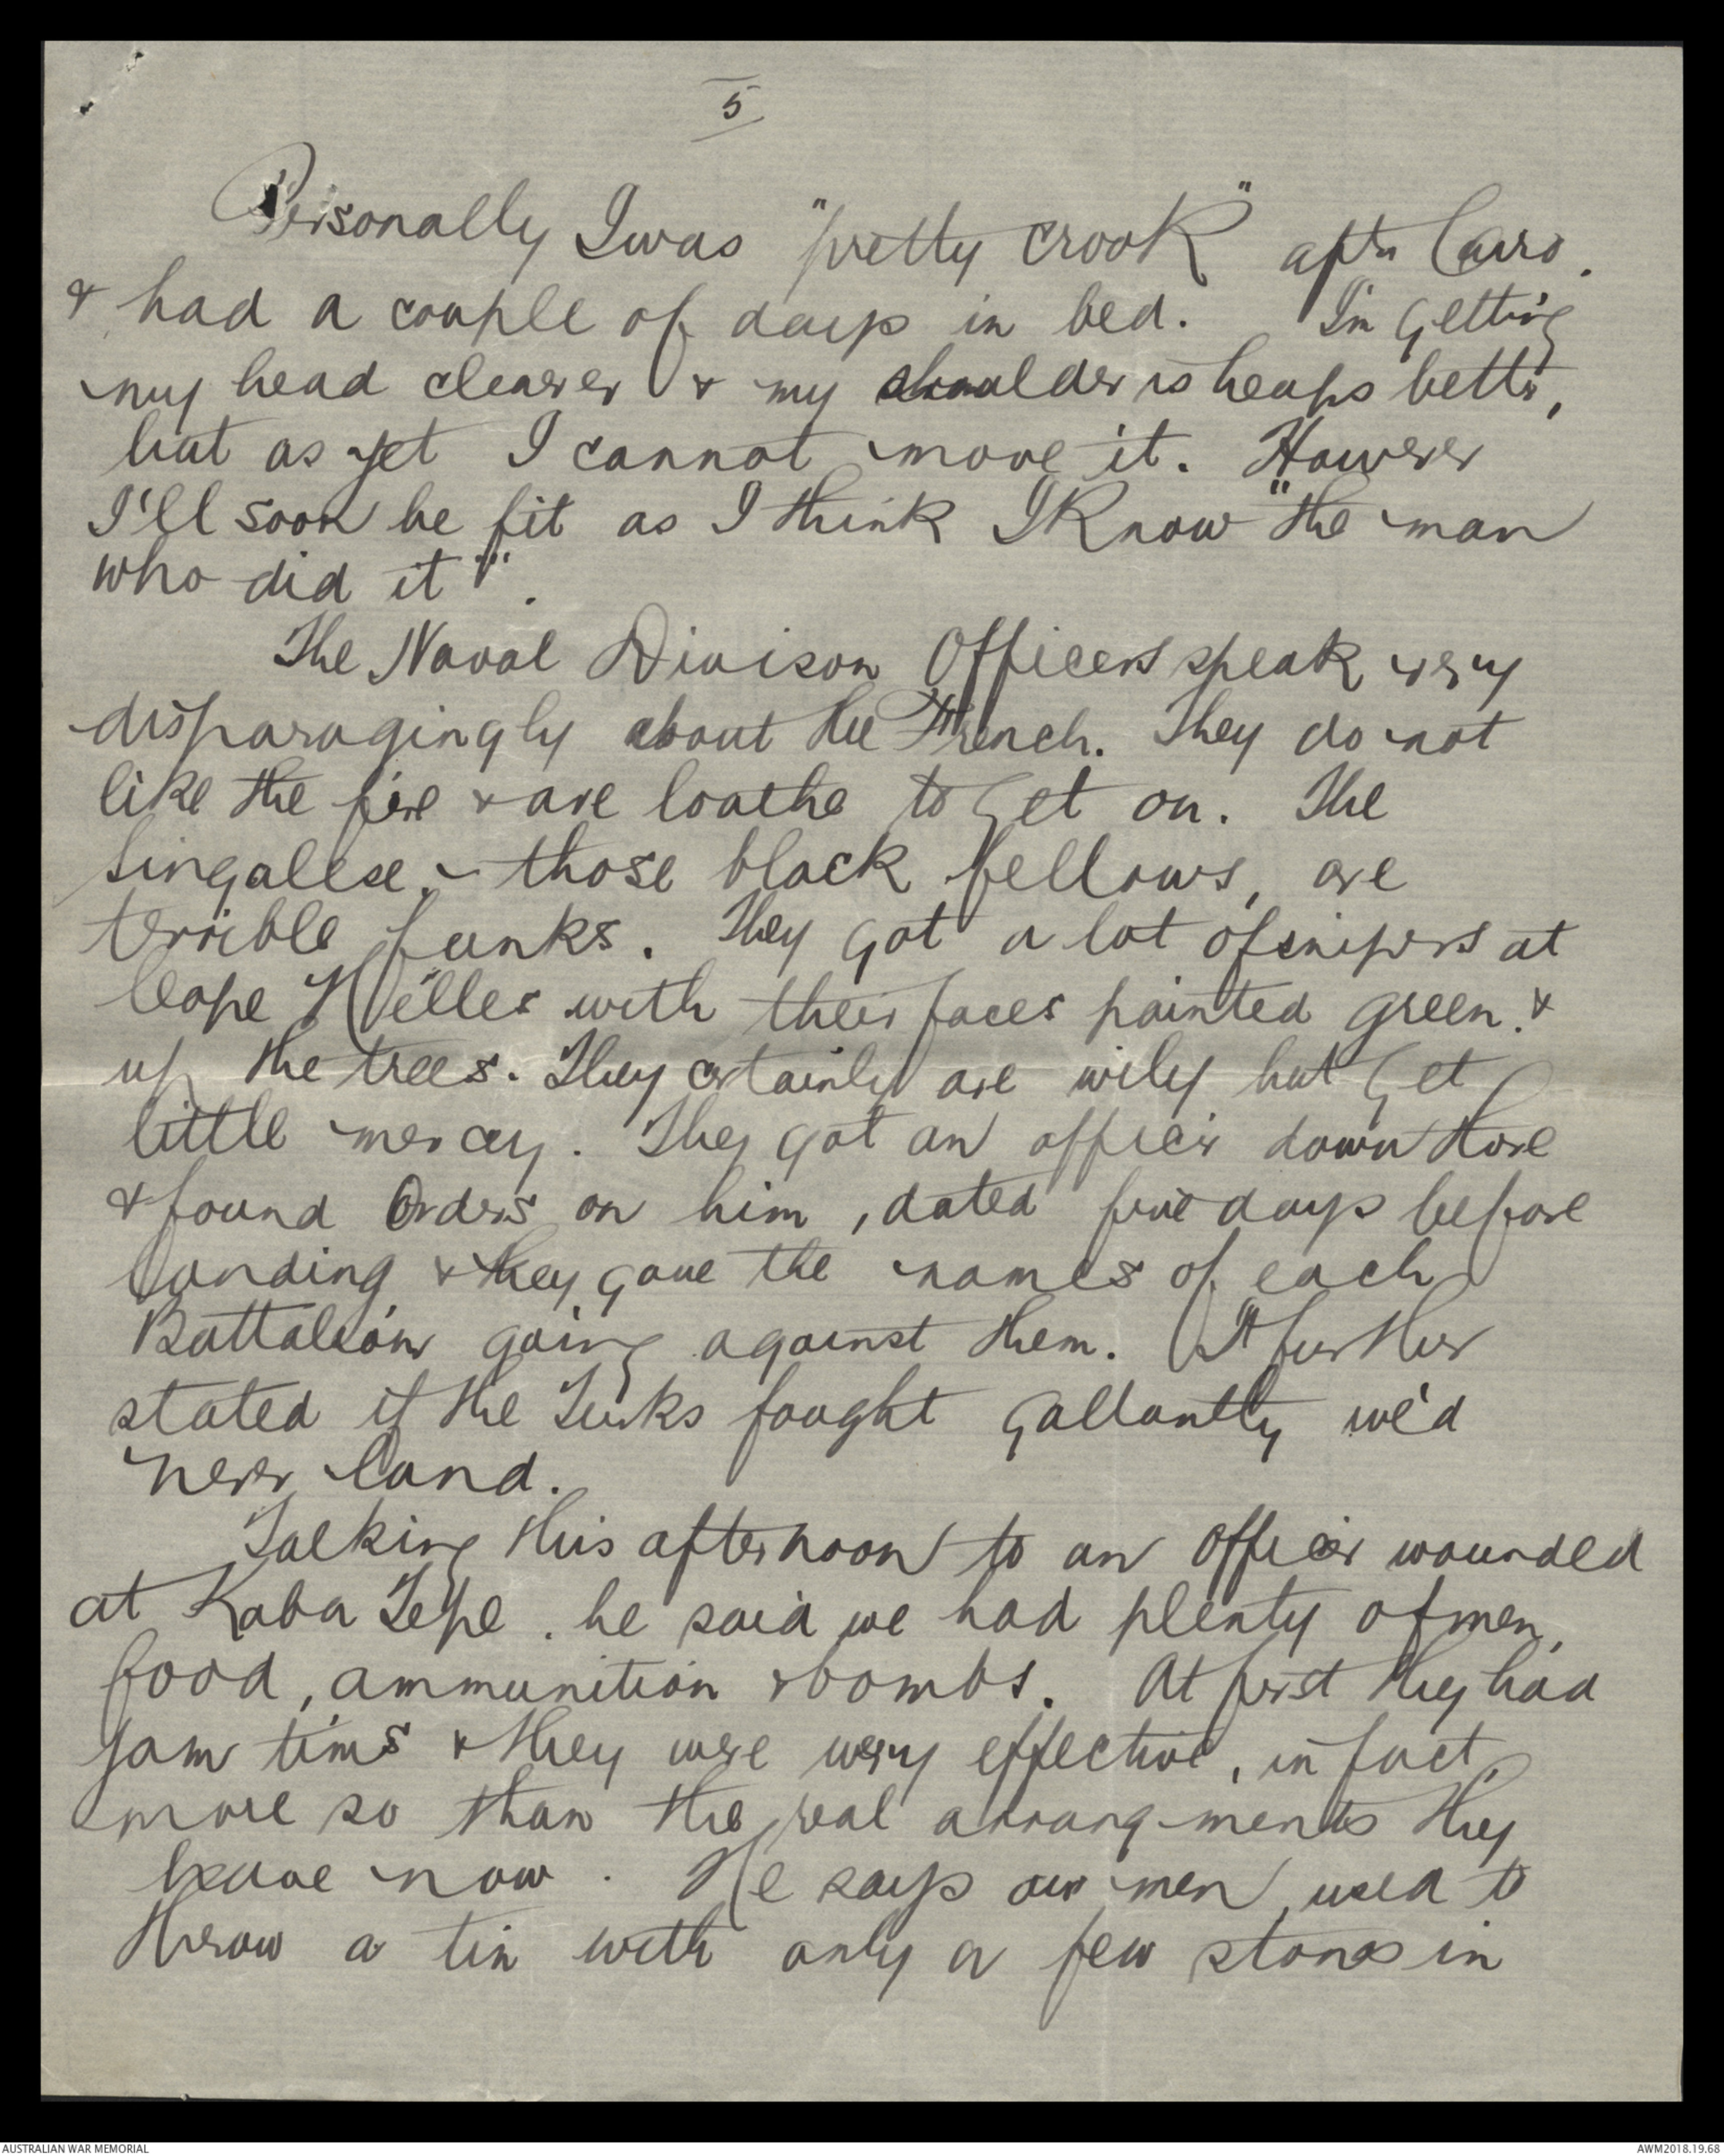 5
Personally I was "pretty crook" aftr Cairo.
& had a couple of days in bed. I'm getting
my head clearer & my shoulder is heaps bettr,
but as yet I cannot move it. However
I'll soon be fit as I think I know "the man
who did it".
The Naval Divison Officers speak very
disparagingly about the French. They do not
like the fire & are loathe to get on. The
Singalese, - those black fellows, are
terrible funks. They got a lot of snipers at
Cape Hélles with their faces painted green. &
up the trees. They certainly are wily but get
little mercy. They got an officer down there
& found Orders on him, dated five days before
landing & they gave the names of each
Battalion going against them. It further
stated if the Turks fought gallantly we'd
never land.
Talking this afternoon to an officer wounded
at Kaba Tepe. he said we had plenty of men,
food, ammunition & bombs. At first they had
jam tins & they were very effective, in fact,
more so than the real arrangments they
have now. He says our men used to
throw a tin with only a few stones in
AUSTRALIAN WAR MEMORIAL
AWM2018.19.68